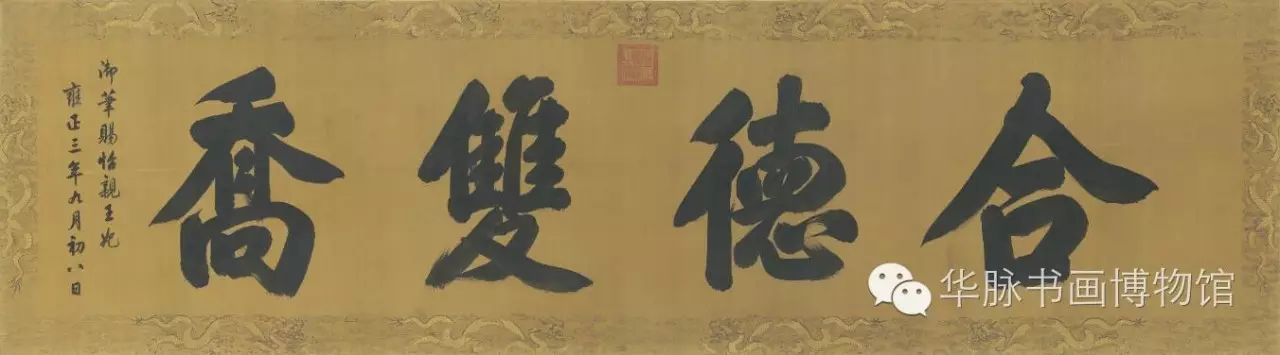 合德雙喬
御筆賜怡親王妃
雍正三年九月初八日
华脉书画博物馆